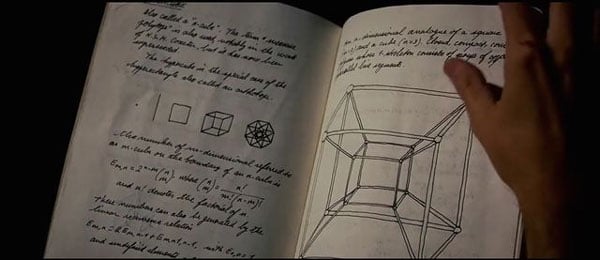 also called a "n-cube". The term "measure
polytope" is also used, notably in the work
of H.S.M. Coxeter, but it has now been
superseded.
The hypercube is the special case of the
hyperrectangle also called an orthotope.
number of m-dimensional referred to
as m-cubes on the boundary of an n-cube is
Em,n = 2^n-m (n m), where (n m) = n! / m!(n-m)!
and n! denotes the factorial of n
These numbers can also be generated by the
linear recurrence relation
Em,n = 2Em,n-1 + Em-1,n-1, with E0,0 = 1
and undefined elements
n-dimensional analogue of a square
(n=2) and a cube (n=3). Closed, compact, conv
figure whose 1-skeleton consists of groups of opp
parallel line segments